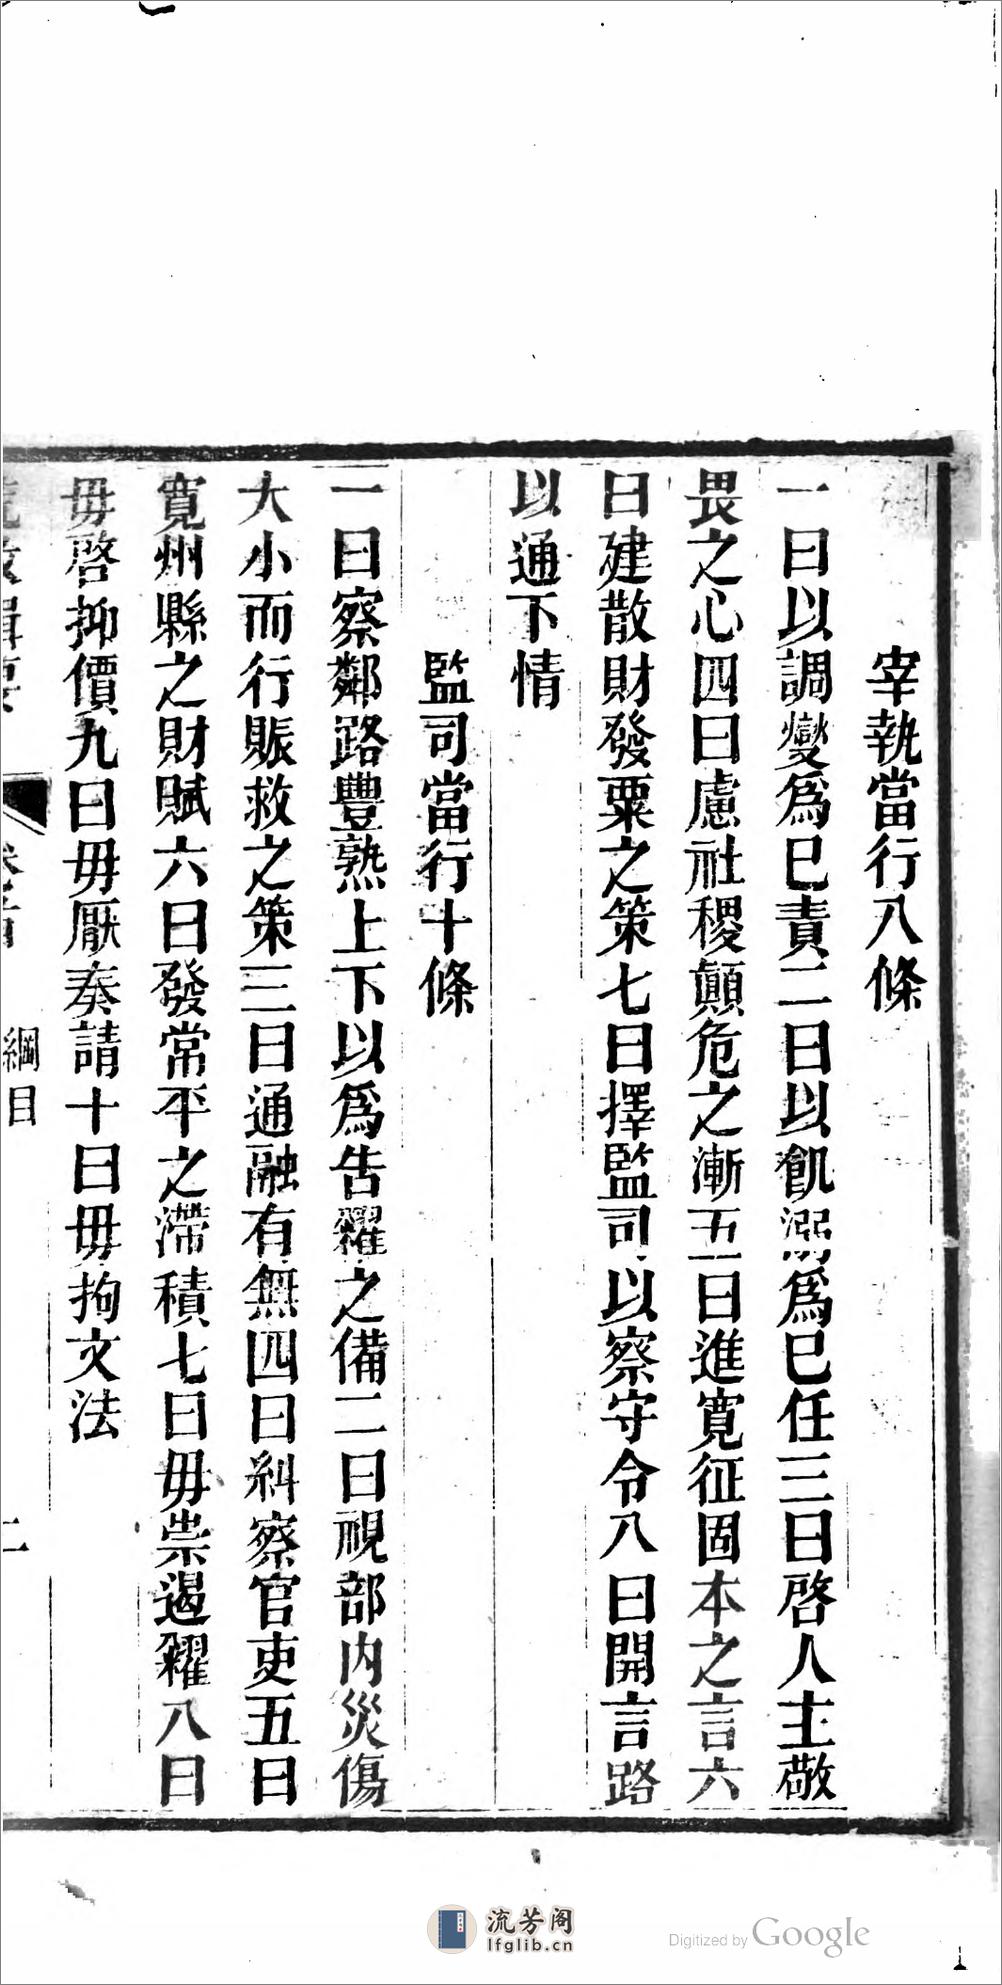 宰執當行八條
一曰以調燮爲己責二曰以飢溺爲己任三曰啓人主敬
畏之心四曰慮社稷顚危之漸五曰進寬征固本之言六
曰建散財發粟之策七曰擇監司以察守令八曰開言路
以通下情
監司當行十條
一曰察鄰路豐熟上下以爲告糴之備二曰視部內災傷
大小而行賑救之策三曰通融有無四曰糾察官吏五曰
寬州縣之財賦六曰發常平之滯積七曰毋崇遏糴八曰
毋啓抑價九曰毋厭奏請十曰毋拘文法
綱目
二
流芳阁
lfglib.cn
Digitized by Google